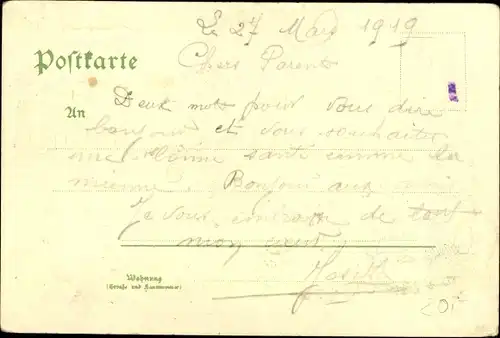 Le 27 Mars 1919
Postkarte
Chers Parents
An
Deux mots pour vous dire
bonjour et vous souhaiter
une bonne santé comme la
mienne. Bonjour aux
Je vous de tout
mon cœur.
Wohnung
(Straße und Hausnummer)